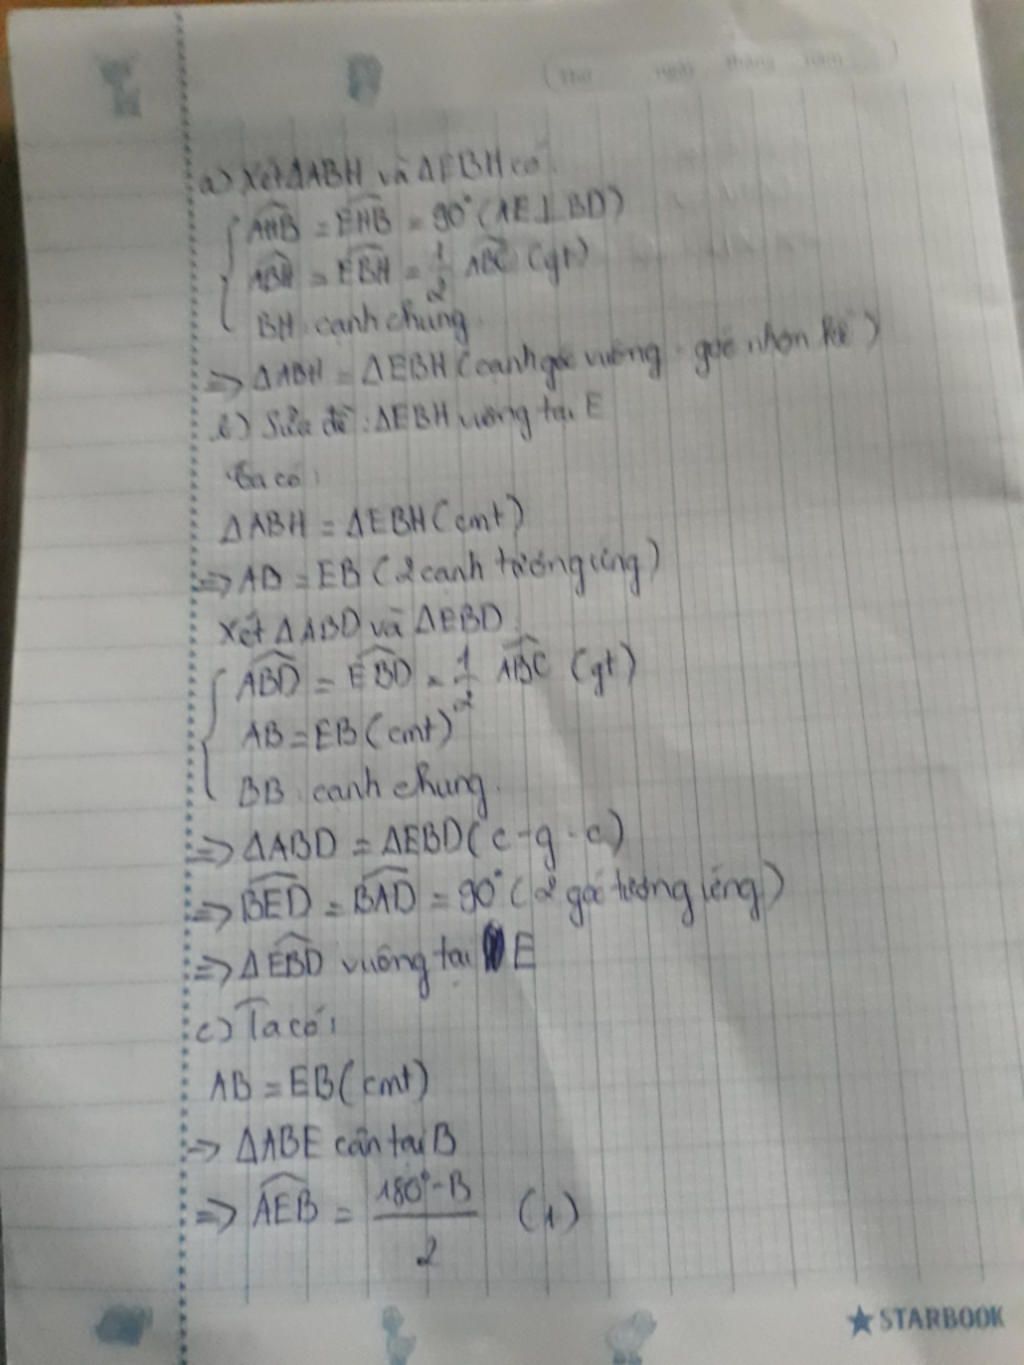 Thứ ngày tháng năm
a) Xét ΔABH và ΔEBH có:
AHB̂ = EHB̂ = 90° (AE⊥BD)
ABĤ = EBĤ = 1/2 ABĈ (gt)
BH: cạnh chung
=> ΔABH = ΔEBH (cạnh góc vuông - góc nhọn kề)
b) Sửa đề: ΔEBH vuông tại E
Ta có:
ΔABH = ΔEBH (cmt)
=> AB = EB (2 cạnh tương ứng)
Xét ΔABD và ΔEBD
ABD̂ = EBD̂ = 1/2 ABĈ (gt)
AB = EB (cmt)
BB: cạnh chung.
=> ΔABD = ΔEBD (c - g - c)
=> BED̂ = BAD̂ = 90° (2 góc tương ứng)
=> ΔEBD̂ vuông tại E
c) Ta có:
AB = EB (cmt)
=> ΔABE cân tại B
=> AEB̂ = (180° - B)/2 (1)
★STARBOOK